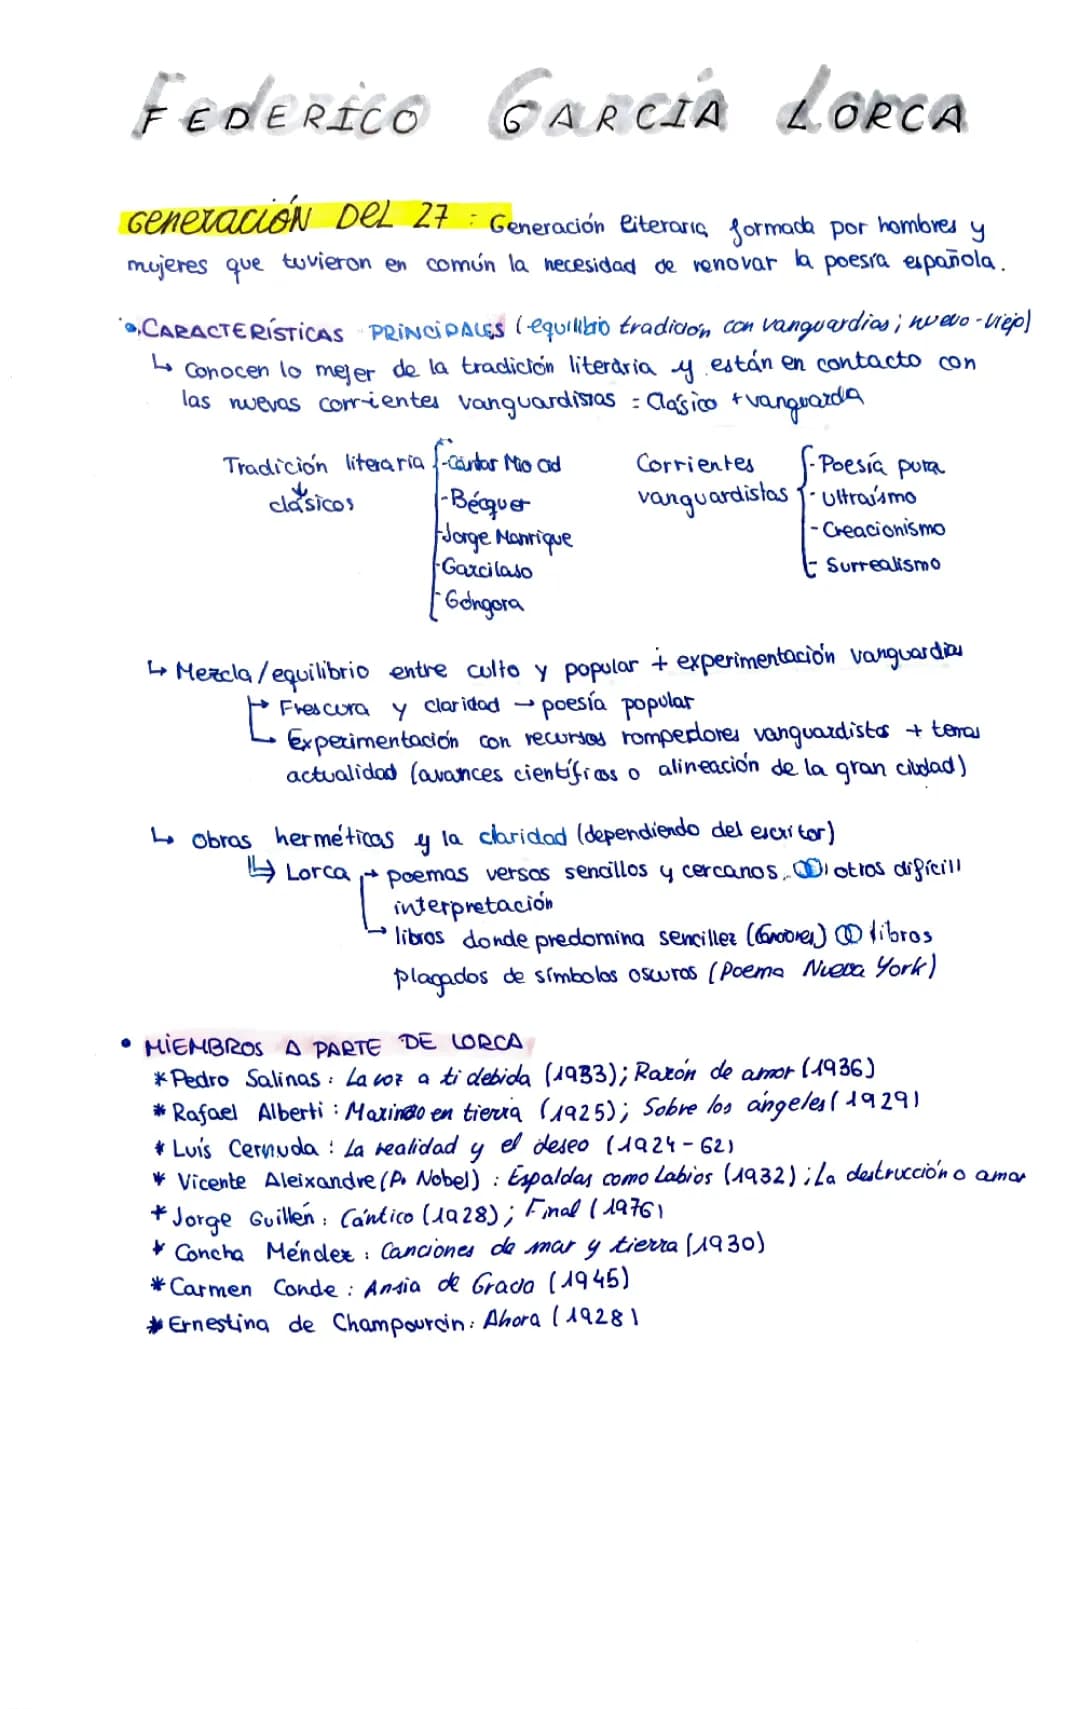 FEDERICO GARCÍA LORCA
Generación Del 27 : Generación literaria formada por hombres y
mujeres que tuvieron en común la necesidad de renovar la poesía española.
CARACTERÍSTICAS PRINCIPALES (equilibrio tradición con vanguardias; nuevo-viejo)
↳ Conocen lo mejer de la tradición literaria y están en contacto con
las nuevas corrientes vanguardistas = Clásico + vanguarda
Tradición literaria
↓
clásicos
- Cantar Mio Cid
- Bécquer
- Jorge Manrique
- Garcilaso
- Góngora
Corrientes
vanguardistas
- Poesía pura
- Ultraísmo
- Creacionismo
- Surrealismo
↳ Mezcla/equilibrio entre culto y popular + experimentación vanguardias
↳ Frescura y claridad → poesía popular
↳ Experimentación con recursos rompedores vanguardistas + temas
actualidad (avances científicos o alineación de la gran ciudad)
↳ Obras herméticas y la claridad (dependiendo del escritor)
↳ Lorca → poemas versos sencillos y cercanos, otros difícill
interpretación
→ libros donde predomina sencillez (Canciones) libros
plagados de símbolos oscuros (Poema Nueva York)
• MIEMBROS A PARTE DE LORCA
* Pedro Salinas : La voz a ti debida (1933); Razón de amor (1936)
* Rafael Alberti : Marinero en tierra (1925); Sobre los ángeles (1929)
* Luis Cernuda : La realidad y el deseo (1924-62)
* Vicente Aleixandre (P. Nobel) : Espaldas como Labios (1932) ; La destrucción o amor
* Jorge Guillén : Cántico (1928); Final (1976)
* Concha Méndez : Canciones de mar y tierra (1930)
* Carmen Conde : Ansia de Gracia (1945)
* Ernestina de Champourcin : Ahora (1928)